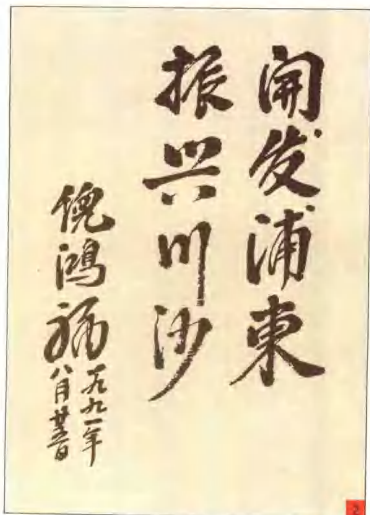 開发浦東
振兴川沙
倪鴻福
一九九一年
八月日
2